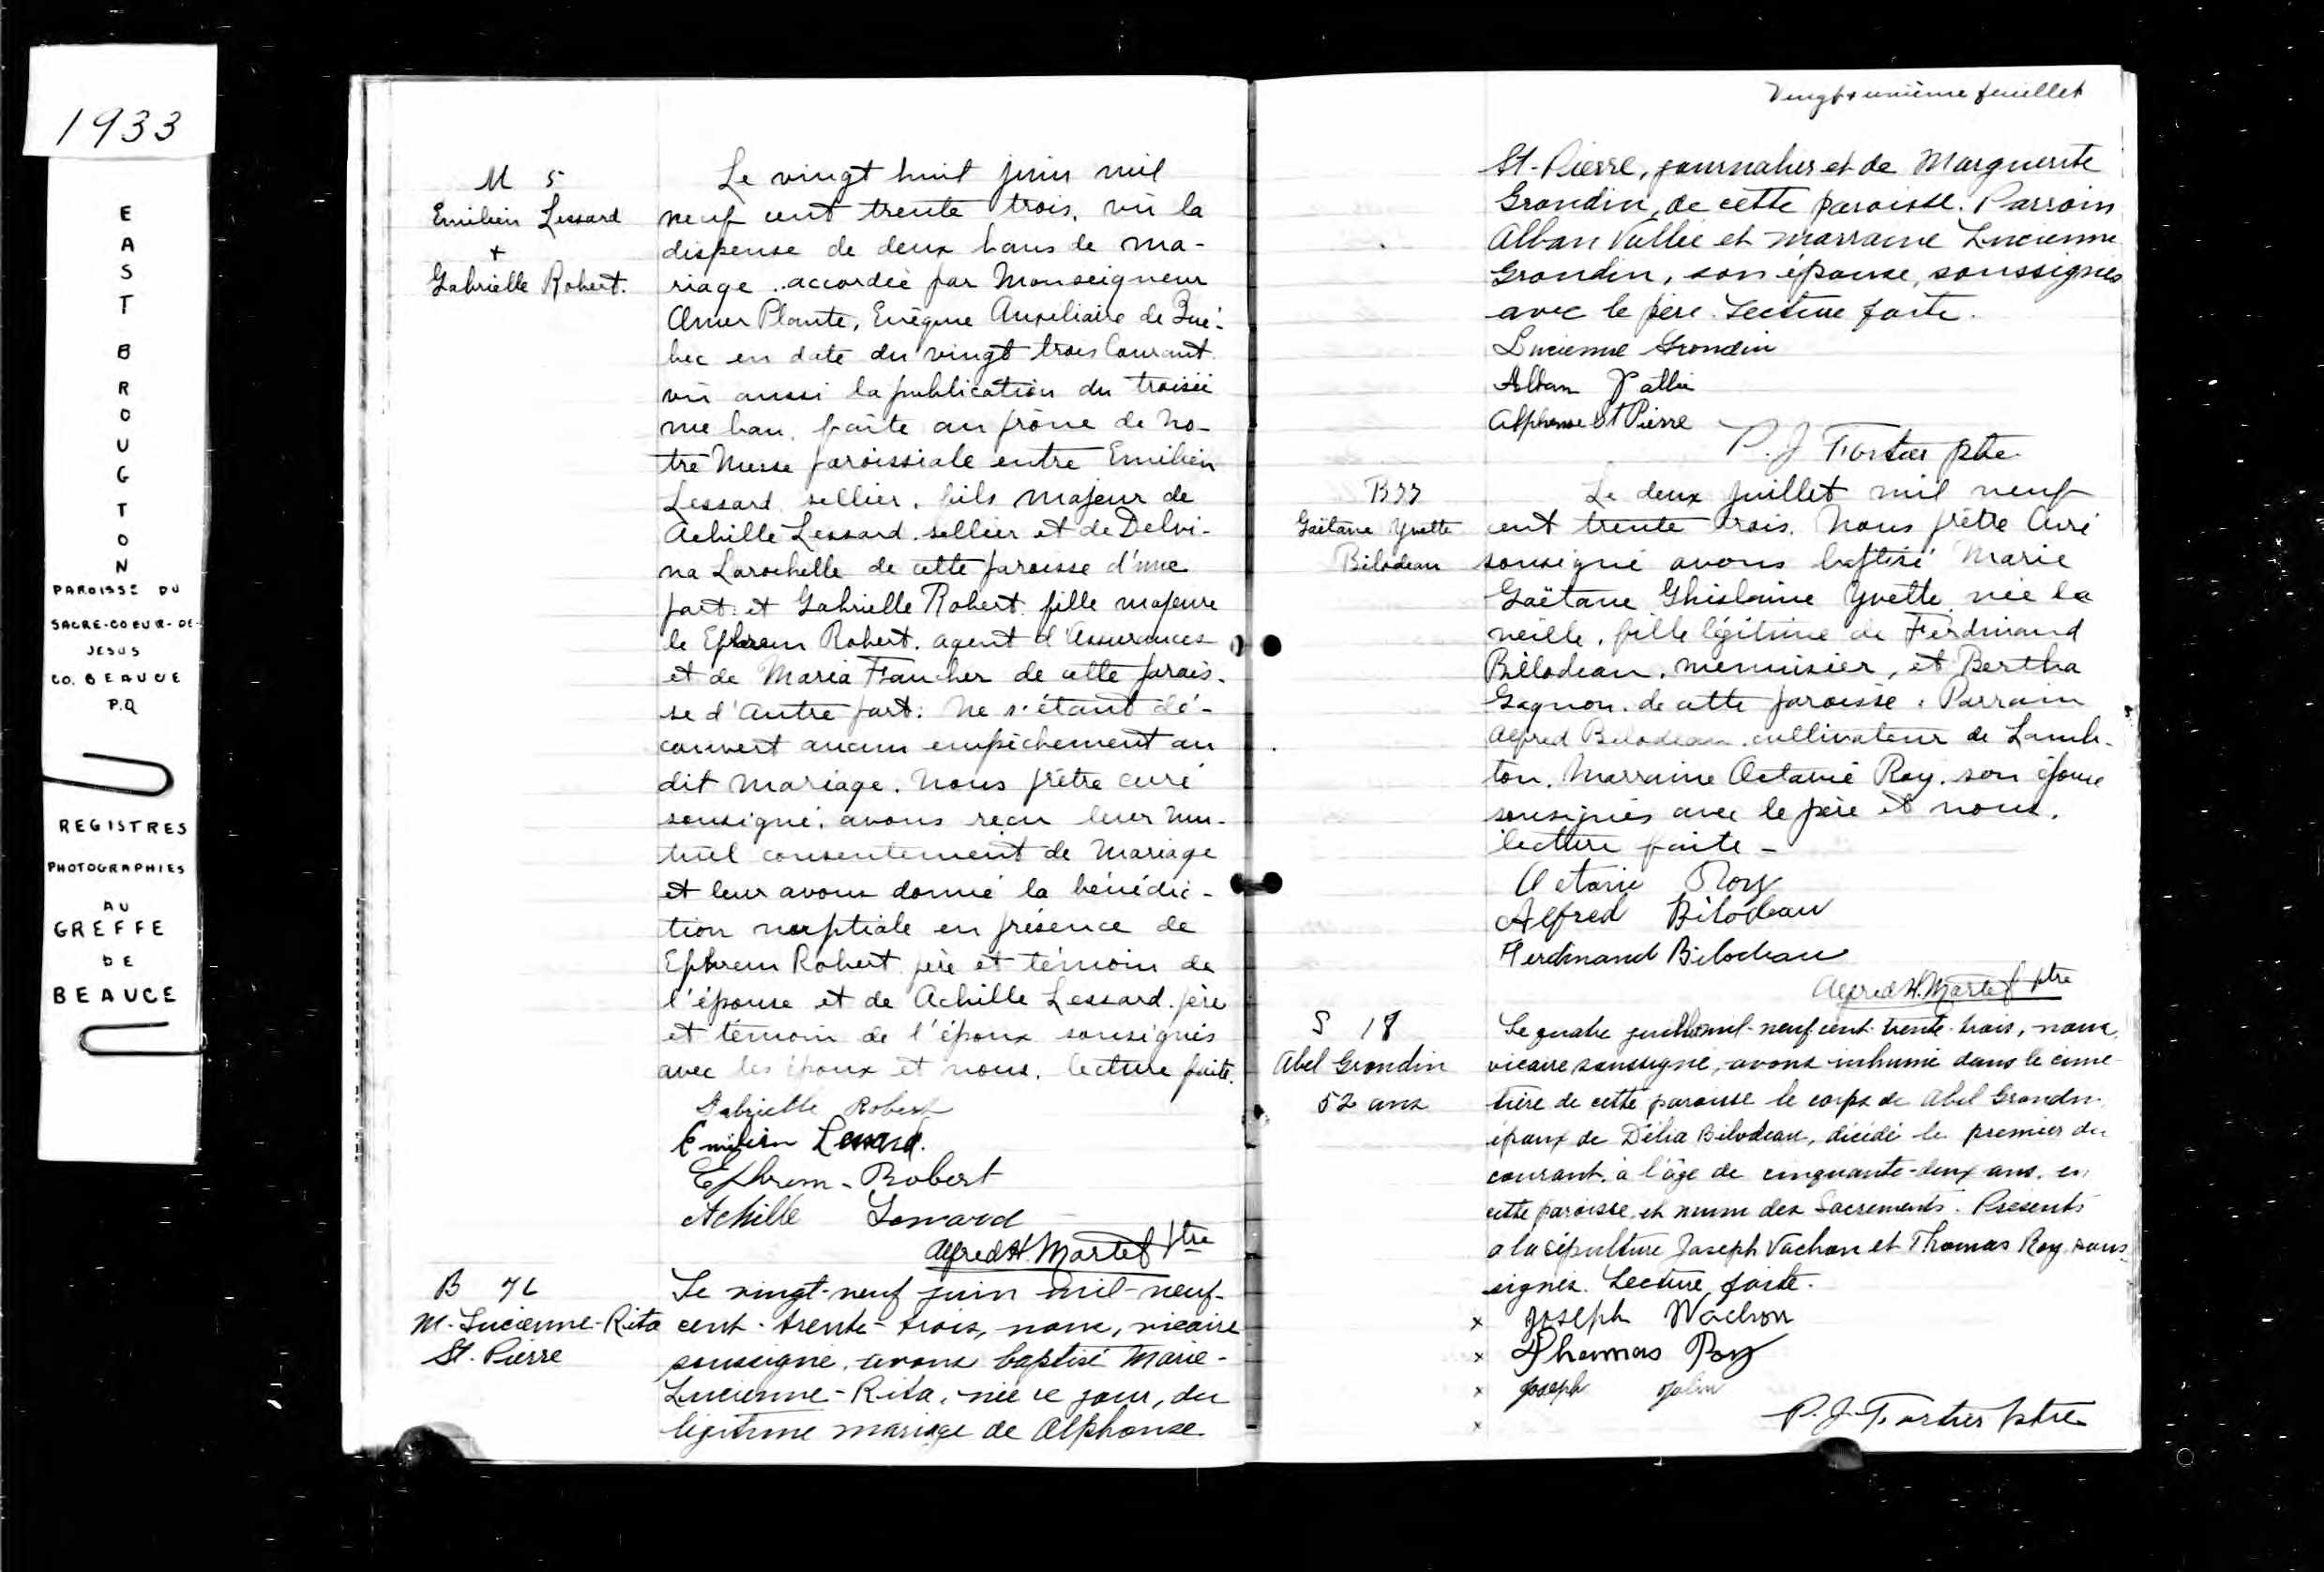 1933
EAST BROUGTON
PAROISSE DU
SACRE-COEUR-DE-
JESUS
CO. BEAUCE
P.Q
REGISTRES
PHOTOGRAPHIES
AU
GREFFE
DE
BEAUCE
M 5
Emilien Lessard
+
Gabrielle Robert.
Le vingt huit juin mil
neuf cent trente trois, vu la
dispense de deux bans de ma-
riage accordée par Monseigneur
Omer Plante, Evêque Auxiliaire de Qué-
bec en date du vingt trois Courant.
vu aussi la publication du troisiè
me ban, faite au prône de no-
tre Messe paroissiale entre Emilien
Lessard sellier, fils majeur de
Achille Lessard sellier et de Delvi-
na Larochelle de cette paroisse d'une
part et Gabrielle Robert fille majeure
de Ephrem Robert agent d'Assurances
et de Maria Faucher de cette parois-
se d'autre part: Ne s'étant dé-
couvert aucun empêchement au
dit mariage. Nous prêtre curé
soussigné, avons reçu leur mu-
tuel consentement de Mariage
et leur avons donné la bénédic-
tion nuptiale en présence de
Ephrem Robert père et témoin de
l'épouse et de Achille Lessard père
et témoin de l'époux sousignés
avec les époux et nous. lecture faite.
Gabrielle Robert
Emilien Lessard.
Ephrem Robert
Achille Lessard
Alfred H. Martel Ptre
B
M-Lucienne-Rita
St. Pierre
Le vingt-neuf juin mil-neuf-
cent-trente-trois, nous, vicaire
soussigné, avons baptisé Marie-
Lucienne-Rita, née ce jour, du
légitime mariage de Alphonse
Vingt-unième feuillet
St-Pierre, journalier et de Marguerite
Grondin, de cette paroisse. Parrain
Alban Vallée et marraine Lucienne
Grondin, son épouse, soussignés
avec le père. Lecture faite.
Lucienne Grondin
Alban Vallée
Alphonse St Pierre
P. J. Fortier ptre
B
Gaëtane Yvette
Bilodeau
Le deux juillet mil neuf
cent trente trois. Nous prêtre Curé
sousigné avons baptisé Marie
Gaëtane Ghislaine Yvette née la
veille, fille légitime de Ferdinand
Bilodeau, menuisier, et Bertha
Gagnon de cette paroisse. Parrain
Alfred Bilodeau cultivateur de Lamb-
ton. Marraine Octavie Roy, son épouse
sousignés avec le père et nous.
lecture faite -
Octavie Roy
Alfred Bilodeau
Ferdinand Bilodeau
Alfred H. Martel ptre
S 18
Abel Grondin
52 ans
Le quatre juillet mil-neuf cent-trente-trois, nous,
vicaire soussigné, avons inhumé dans le cime-
tière de cette paroisse le corps de Abel Grondin
époux de Délia Bilodeau, décédé le premier du
courant, à l'âge de cinquante-deux ans, en
cette paroisse et muni des Sacrements. Présents
a la sépulture Joseph Vachon et Thomas Roy sous-
signés. Lecture faite.
x Joseph Wachon
x Thomas Roy
x Joseph
x
P. J. Fortier ptre